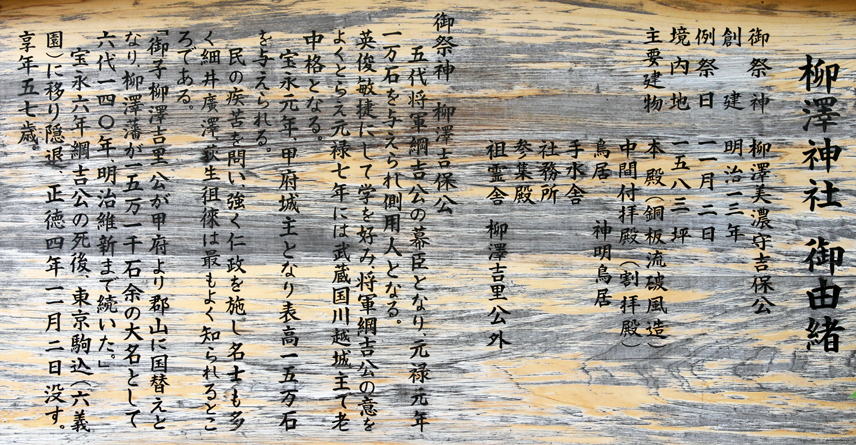 柳澤神社 御由緒
御祭神 柳澤美濃守吉保公
創建 明治一三年
例祭日 一一月二日
境内地 一五八三坪
主要建物 本殿(銅板流破風造)
中間付拝殿(割拝殿)
鳥居 神明鳥居
手水舎
社務所
参集殿
祖霊舎 柳澤吉里公外
御祭神 柳澤吉保公
五代将軍綱吉公の幕臣となり、元禄元年
一万石を与えられ側用人となる。
英俊敏捷にして学を好み将軍綱吉公の意を
よくとらえ元禄七年には武蔵国川越城主で老
中格となる。
宝永元年、甲府城主となり表高一五万石
を与えられる。
民の疾苦を問い、強く仁政を施し名士も多
く細井廣澤、荻生徂徠は最もよく知られるとこ
ろである。
「御子柳澤吉里公が甲府より郡山に国替えと
なり、柳澤藩が一五万一千石余の大名として
六代一四〇年、明治維新まで続いた。」
宝永六年綱吉公の死後、東京駒込(六義
園)に移り隠退、正徳四年一一月二日没す。
享年五七歳。